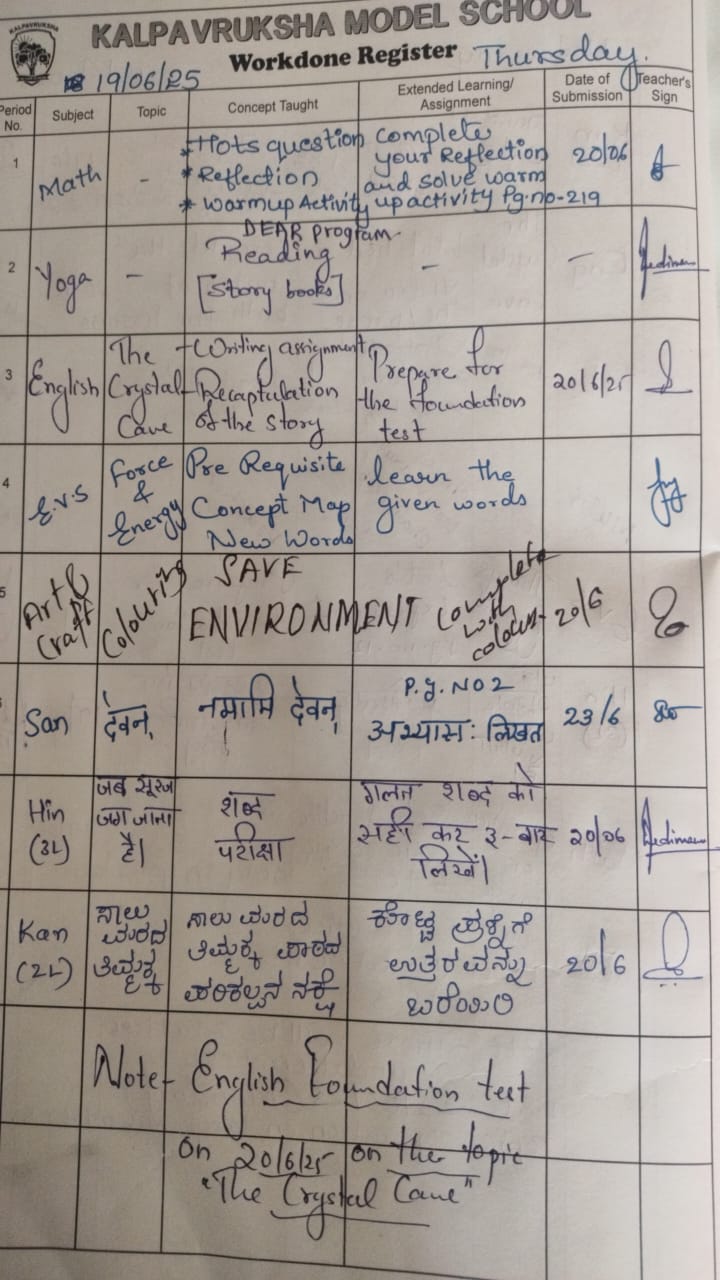 KALPAVRUKSHA
KALPAVRUKSHA MODEL SCHOOL
Workdone Register Thursday.
19/06/25
Period No. Subject Topic Concept Taught Extended Learning/ Assignment Date of Submission Teacher's Sign
1 Math - * Hots question complete
* Reflection your Reflection 20/06
* warmup Activity and solve warm
up activity Pg.no-219
DEAR program
2 Yoga - Reading - -
[Story books]
3 English The - Writing assignment Prepare for 20/6/25
Crystal - Recaptulation the foundation
Cave of the story test
4 E.V.S Force Pre Requisite learn the
& Concept Map given words
Energy New Words
5 Art & Craft Colouring SAVE complete
ENVIRONMENT with colour 20/6
San देवन् नमामि देवन् P.g. NO 2 23/6
अभ्यास: लिखत
Hin जब सूरज शब्द गलत शब्द को
(3L) जग जाता परीक्षा सही कर ३-बार 20/06
है। लिखें।
Kan ಸಾಲು ಸಾಲು ಮರದ ಕೊಟ್ಟ ಪ್ರಶ್ನೆಗೆ
(2L) ಮರದ ತಿಮ್ಮಕ್ಕ ಪಾಠದ ಉತ್ತರವನ್ನು 20/6
ತಿಮ್ಮಕ್ಕ ಪರಿಕಲ್ಪನ ನಕ್ಷೆ ಬರೆಯಿರಿ
Note - English Foundation test
on 20/6/25 on the topic
"The Crystal Cave"